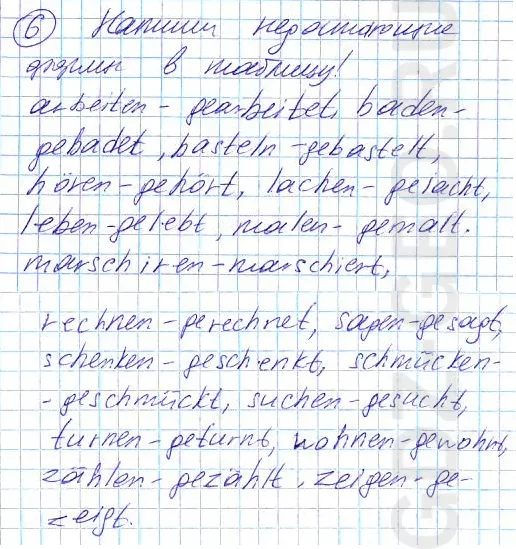 6 Напиши недостающие
формы в таблицу!
arbeiten - gearbeitet, baden-
gebadet, basteln - gebastelt,
hören - gehört, lachen - gelacht,
leben - gelebt, malen - gemalt.
marschiren - marschiert,
rechnen - gerechnet, sagen - gesagt,
schenken - geschenkt, schmücken-
- geschmückt, suchen - gesucht,
turnen - geturnt, wohnen - gewohnt,
zählen - gezählt, zeigen - ge-
zeigt.
GDZ.GEO.RU